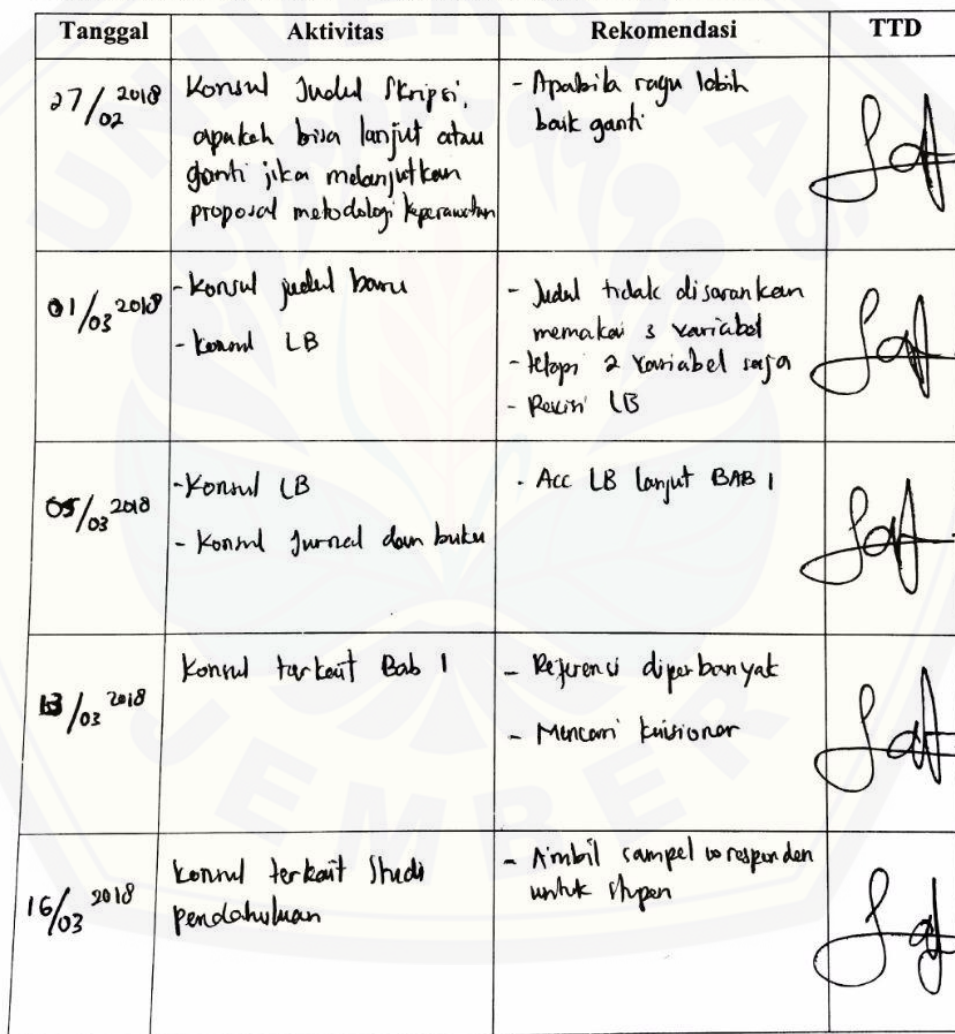 Tanggal Aktivitas Rekomendasi TTD
27/02 2018
Konsul Judul Skripsi,
apakah bisa lanjut atau
ganti jika melanjutkan
proposal metodologi keperawatan
- Apabila ragu lebih
baik ganti
01/03 2018
- Konsul judul baru
- Konsul LB
- Judul tidak disarankan
memakai 3 variabel
- tetapi 2 variabel saja
- Revisi LB
05/03 2018
- Konsul LB
- Konsul Jurnal dan buku
- Acc LB lanjut BAB 1
13/03 2018
Konsul terkait Bab 1
- Referensi diperbanyak
- Mencari kuisioner
16/03 2018
Konsul terkait Studi
pendahuluan
- Ambil sampel 10 responden
untuk stupen
UNIVERSITAS
JEMBER